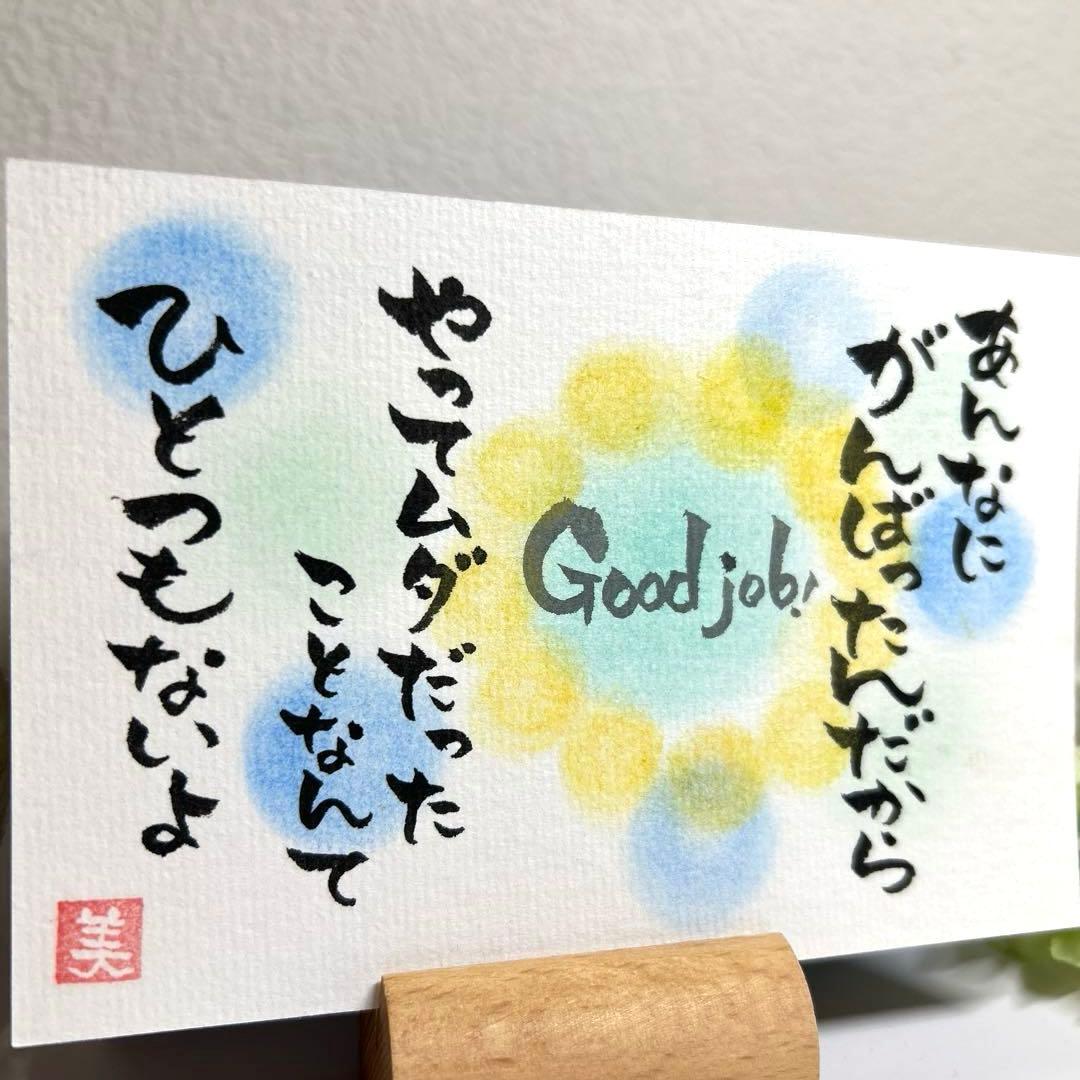 あんなに
がんばったんだから
Good job!
やってムダだった
ことなんて
ひとつもないよ
美